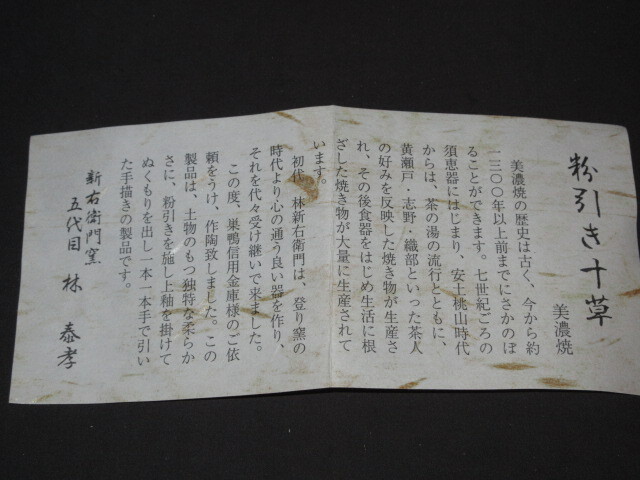 粉引き十草
美濃焼
美濃焼の歴史は古く、今から約
一三〇〇年以上前までにさかのぼ
ることができます。七世紀ごろの
須恵器にはじまり、安土桃山時代
からは、茶の湯の流行とともに、
黄瀬戸・志野・織部といった茶人
の好みを反映した焼き物が生産さ
れ、その後食器をはじめ生活に根
ざした焼き物が大量に生産されて
います。
初代 林新右衛門は、登り窯の
時代より心の通う良い器を作り、
それを代々受け継いで来ました。
この度、巣鴨信用金庫様のご依
頼をうけ、作陶致しました。この
製品は、土物のもつ独特な柔らか
さに、粉引きを施し上釉を掛けて
ぬくもりを出し一本一本手で引い
た手描きの製品です。
新右衛門窯
五代目 林 泰孝